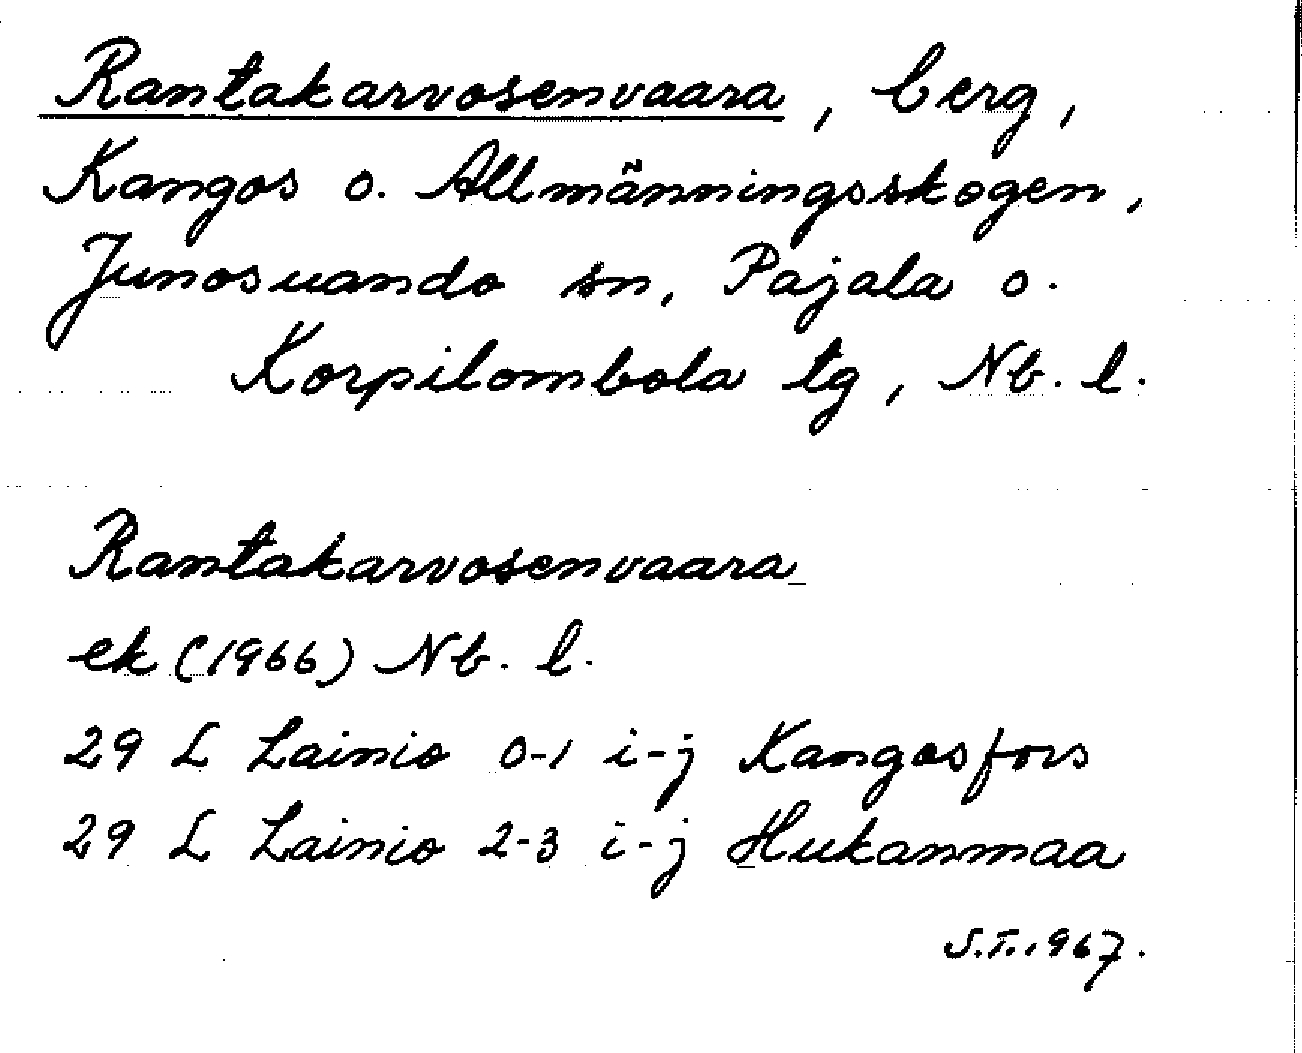 Rantakarvosenvaara, berg,
Kangos o. Allmänningsskogen,
Junosuando sn, Pajala o.
Korpilombola tg, Nb. l.
Rantakarvosenvaara
ek (1966) Nb. l.
29 L Lainio 0-1 i-j Kangosfors
29 L Lainio 2-3 i-j Hukanmaa
S.T. 1967.